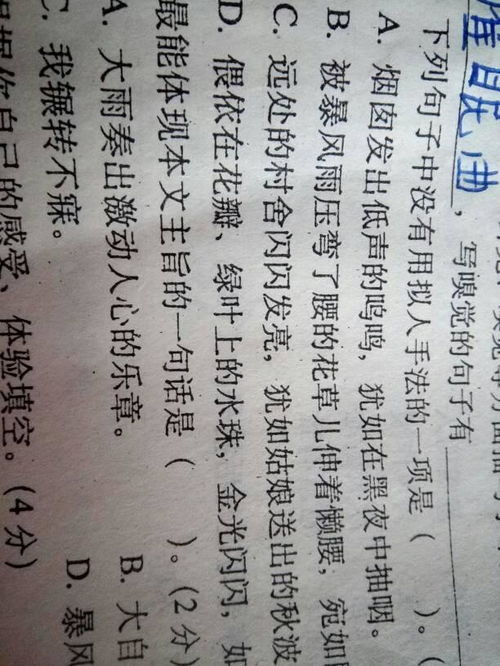 催眠曲
，写嗅觉的句子有
下列句子中没有用拟人手法的一项是（ ）。（
A. 烟囱发出低声的呜鸣，犹如在黑夜中抽咽。
B. 被暴风雨压弯了腰的花草儿伸着懒腰，宛如
C. 远处的村舍闪闪发亮，犹如姑娘送出的秋波
D. 偎依在花瓣、绿叶上的水珠，金光闪闪，如
最能体现本文主旨的一句话是（ ）。（2分）
A. 大雨奏出激动人心的乐章。 B. 大自
C. 我辗转不寐。 D. 暴风
根据你自己的感受、体验填空。（4分）